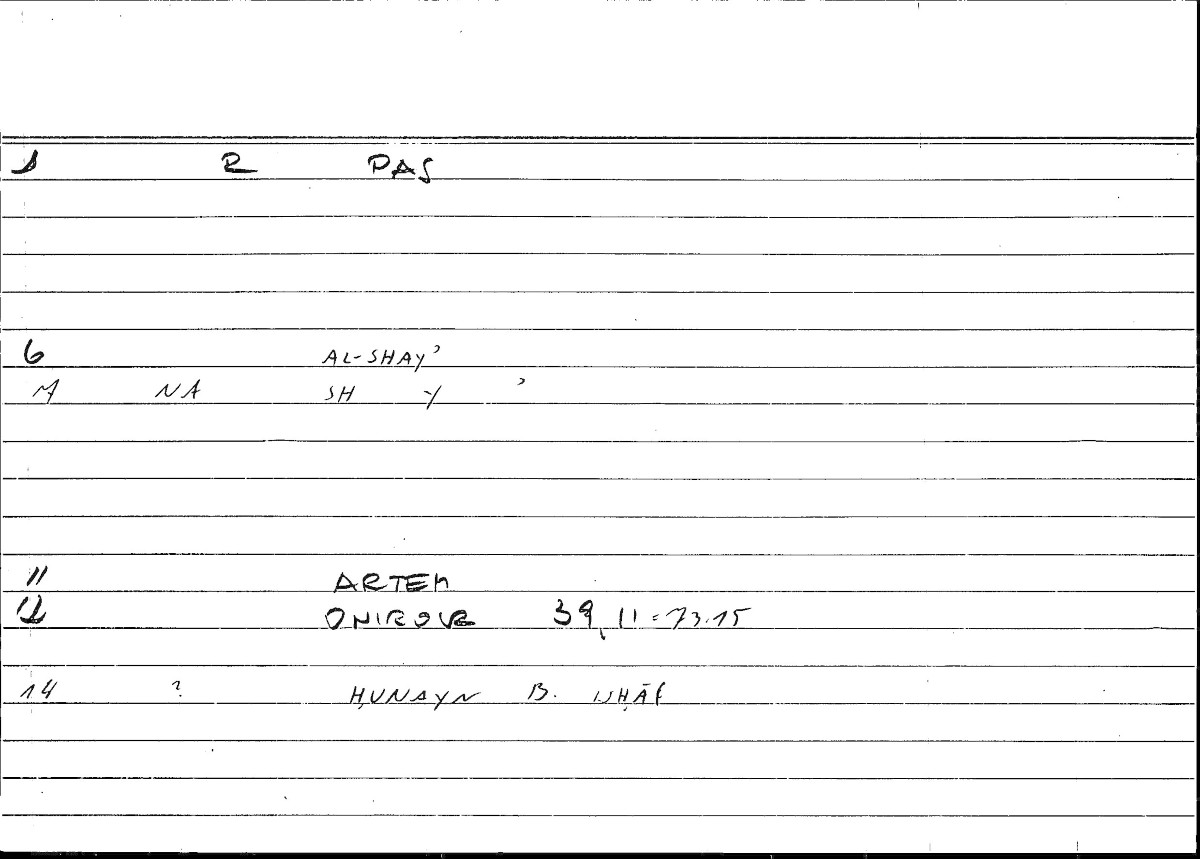 1 R PAS
6 AL-SHAY'
M NA SH Y '
11 ARTEM
12 ONIROCR 39,11 = 73.15
14 ? ḤUNAYN B. ISḤĀḲ